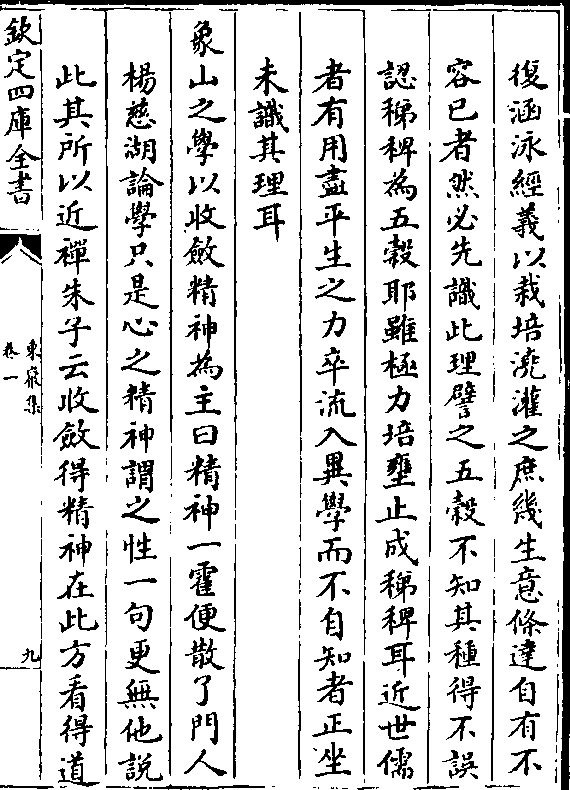 復涵泳經義以栽培澆灌之庶幾生意條達自有不
容已者然必先識此理譬之五穀不知其種得不誤
認稊稗為五穀耶雖極力培壅止成稊稗耳近世儒
者有用盡平生之力卒流入異學而不自知者正坐
未識其理耳
象山之學以收斂精神為主曰精神一霍便散了門人
楊慈湖論學只是心之精神謂之性一句更無他說
此其所以近禪朱子云收斂得精神在此方看得道
欽定四庫全書
東巖集
卷一
九